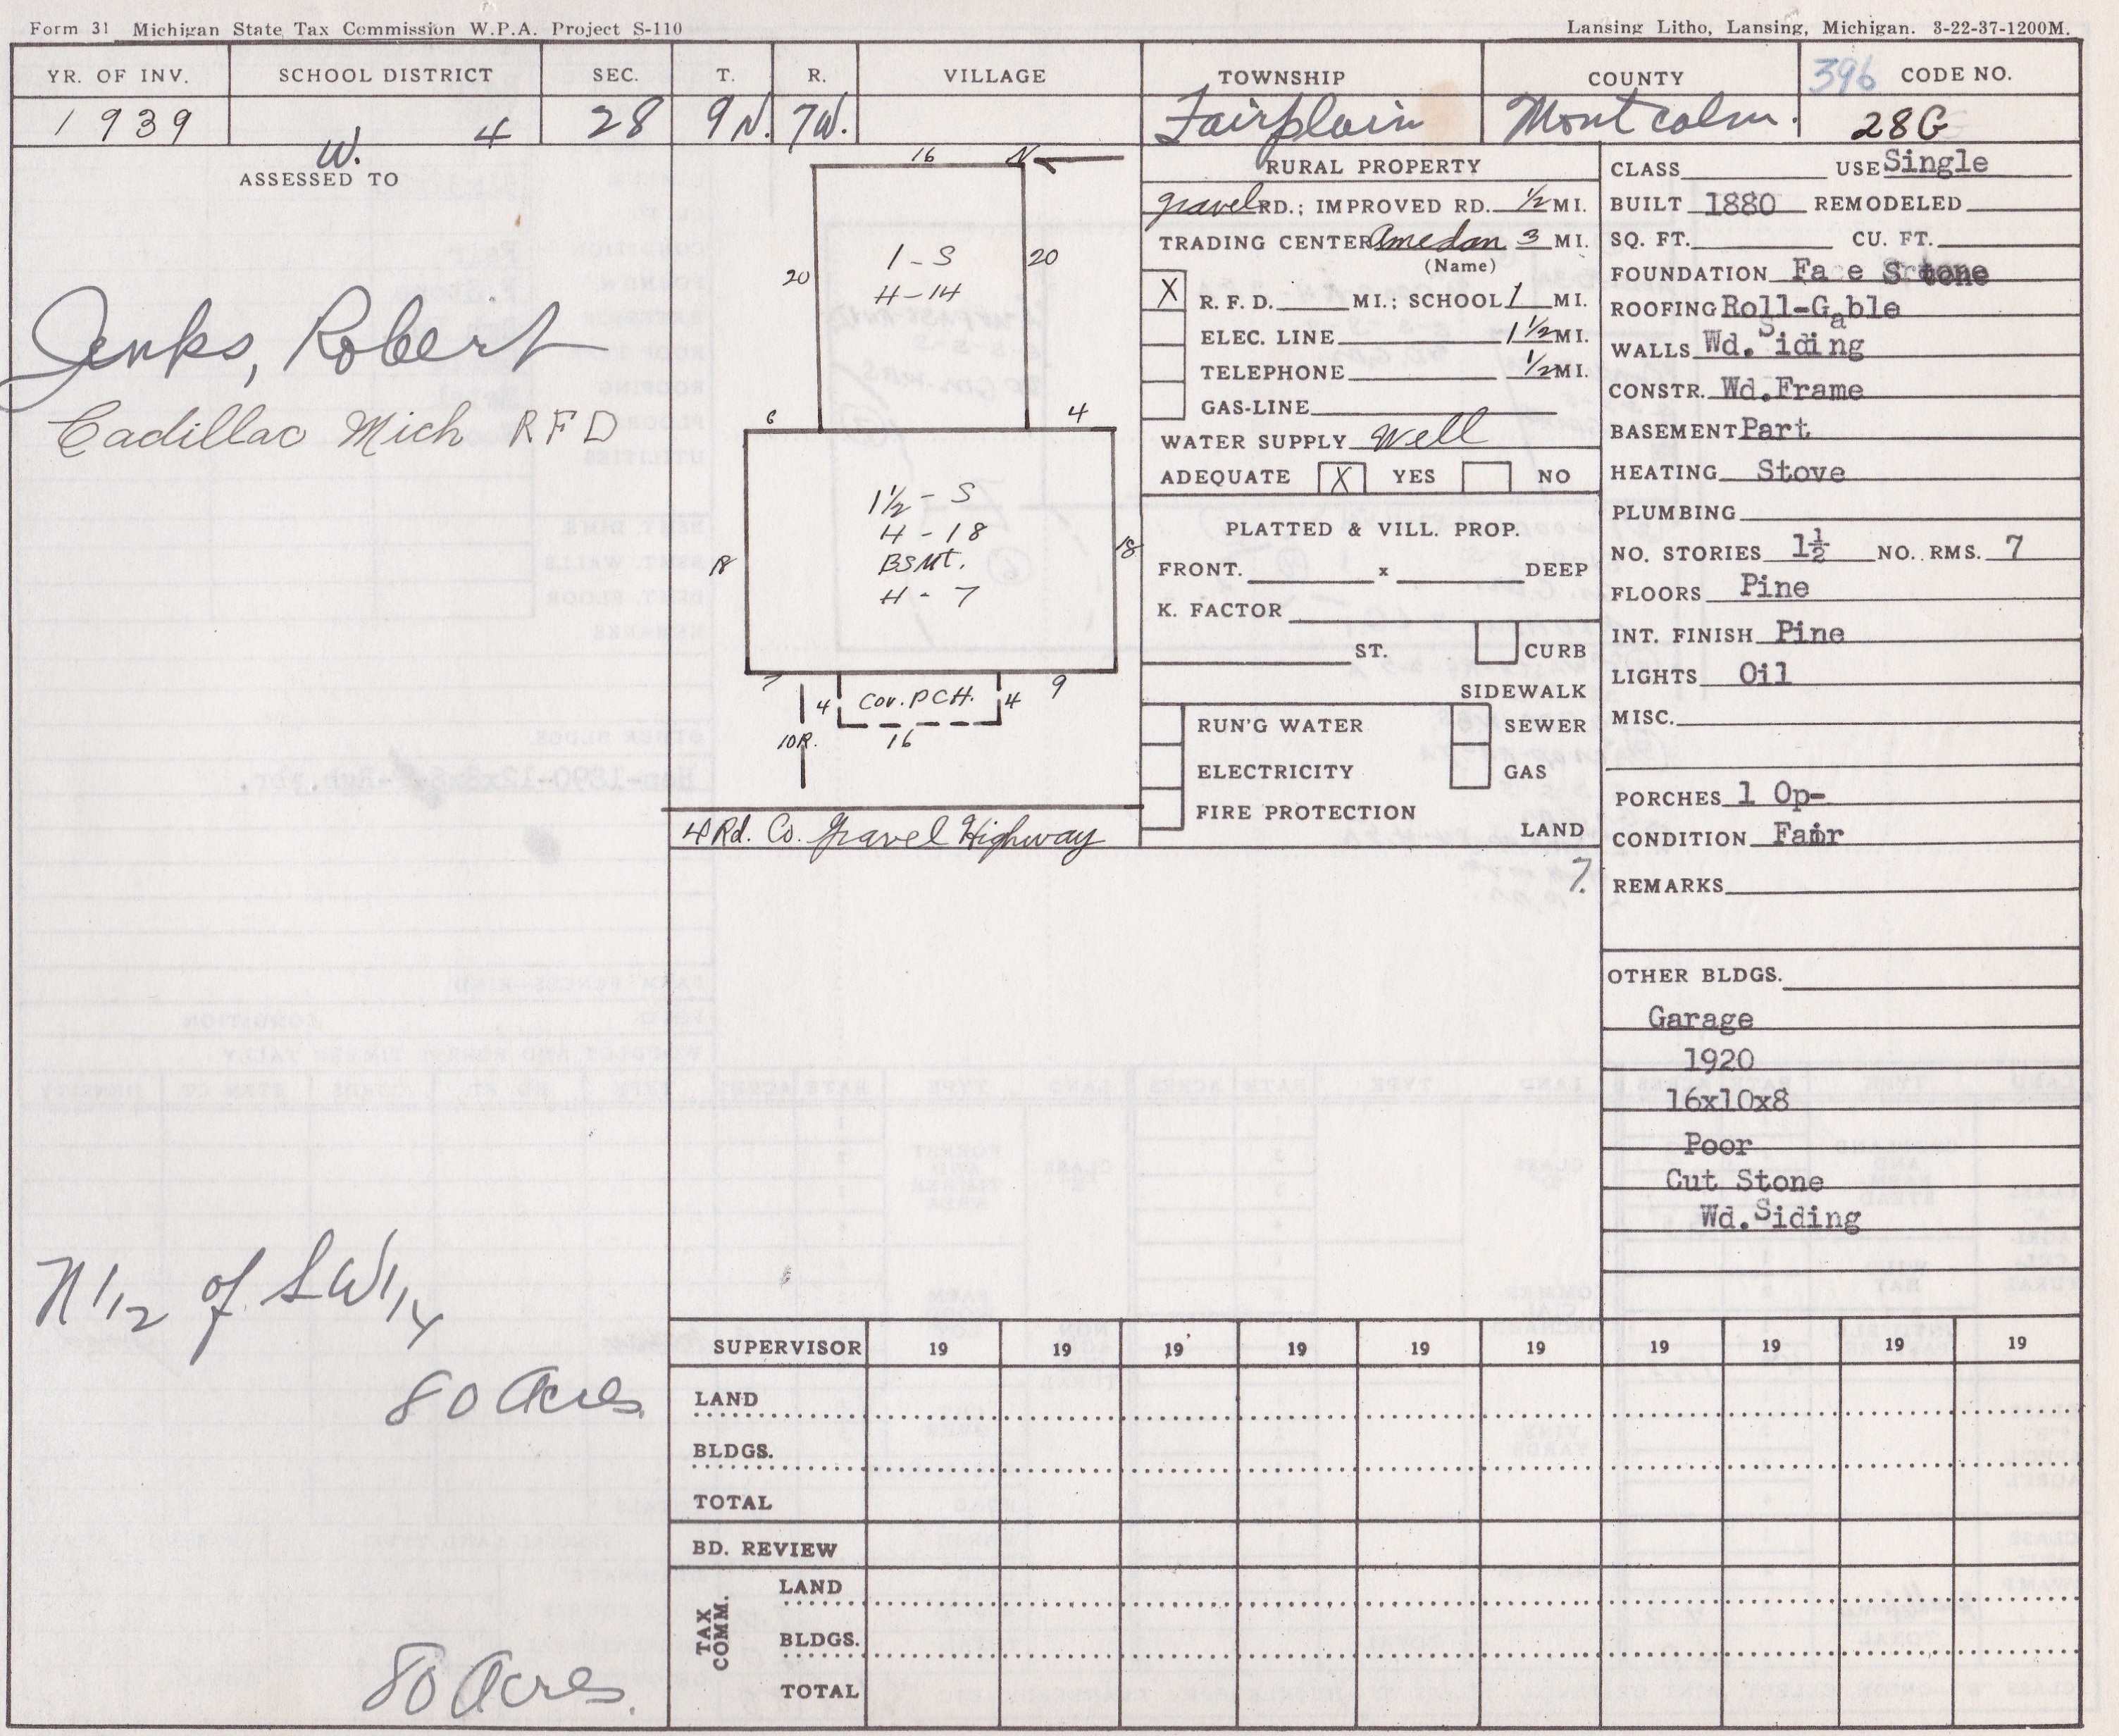 Form 31 Michigan State Tax Commission W.P.A. Project S-110
Lansing Litho, Lansing, Michigan. 3-22-37-1200M.
YR. OF INV. SCHOOL DISTRICT SEC. T. R. VILLAGE TOWNSHIP COUNTY 396 CODE NO.
1939 W. 4 28 9N. 7W. Fairplain Montcalm. 28G
ASSESSED TO
Jenks, Robert
Cadillac Mich RFD
N 1/2 of S W 1/4
80 Acres
80 Acres.
16 N
20 1-S 20
H-14
6 4
1½ - S
H - 18
18 BSMt. 18
H - 7
7 9
4 Cov. PCH. 4
10R. 16
4 Rd. Co. Gravel Highway
RURAL PROPERTY
gravel RD.; IMPROVED RD. ½ MI.
TRADING CENTER 3 MI.
(Name)
X R. F. D. MI.; SCHOOL 1 MI.
ELEC. LINE 1½ MI.
TELEPHONE ½ MI.
GAS-LINE
WATER SUPPLY Well
ADEQUATE X YES NO
PLATTED & VILL. PROP.
FRONT. x DEEP
K. FACTOR
ST. CURB
SIDEWALK
RUN'G WATER SEWER
ELECTRICITY GAS
FIRE PROTECTION
LAND
7.
CLASS USE Single
BUILT 1880 REMODELED
SQ. FT. CU. FT.
FOUNDATION Fa e Stone
ROOFING Roll-Gable
WALLS Wd. Siding
CONSTR. Wd.Frame
BASEMENT Part
HEATING Stove
PLUMBING
NO. STORIES 1½ NO. RMS. 7
FLOORS Pine
INT. FINISH Pine
LIGHTS Oil
MISC.
PORCHES 1 Op-
CONDITION Fair
REMARKS
OTHER BLDGS.
Garage
1920
16x10x8
Poor
Cut Stone
Wd.Siding
SUPERVISOR 19 19 19 19 19 19 19 19 19 19
LAND
BLDGS.
TOTAL
BD. REVIEW
TAX COMM.
LAND
BLDGS.
TOTAL